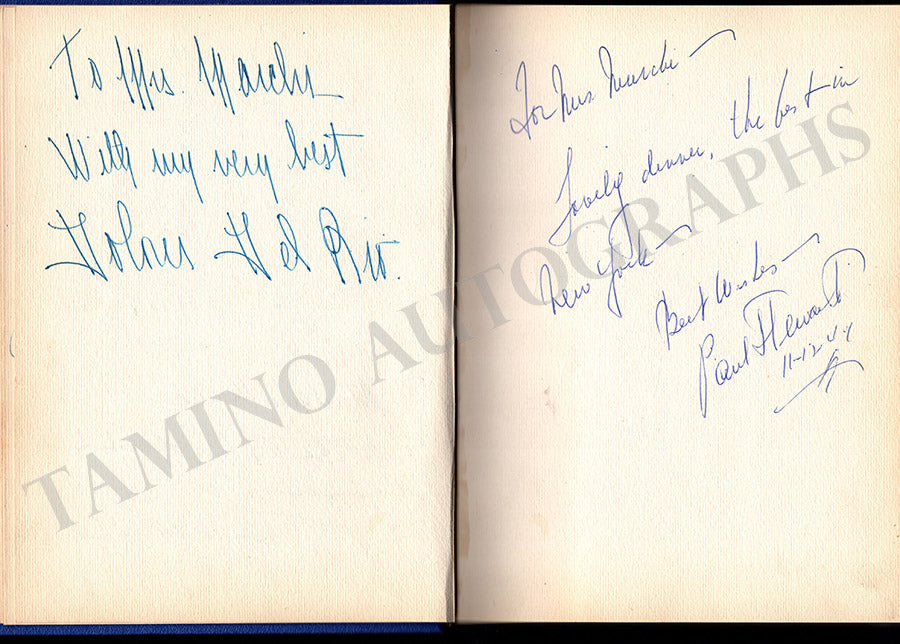 To Mrs. Marchi
With my very best
Dolores Del Rio.
For Mrs. Marchi
Lovely dinner, the best in
New York
Best Wishes
Paul Stewart
11-12-44
TAMINO AUTOGRAPHS